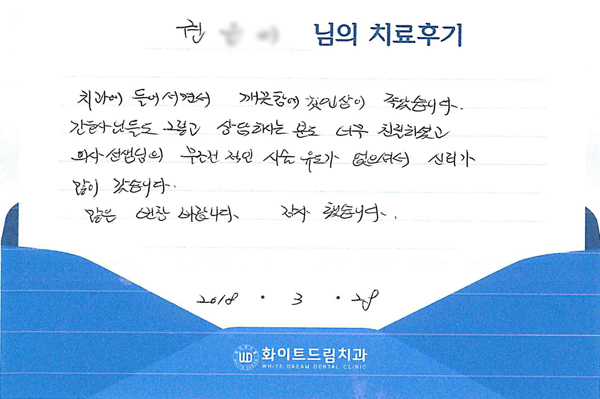 권 님의 치료후기
치과에 들어서면서 깨끗함에 첫인상이 좋았습니다.
간호사님들도 그렇고 상담하시는 분도 너무 친절하셨고
의사선생님의 무조건 적인 시술 유도가 없으셔서 신뢰가
많이 갔습니다.
많은 번창 바랍니다. 감사 했습니다.
2018 · 3 · 28
WD 화이트드림치과
WHITE DREAM DENTAL CLINIC